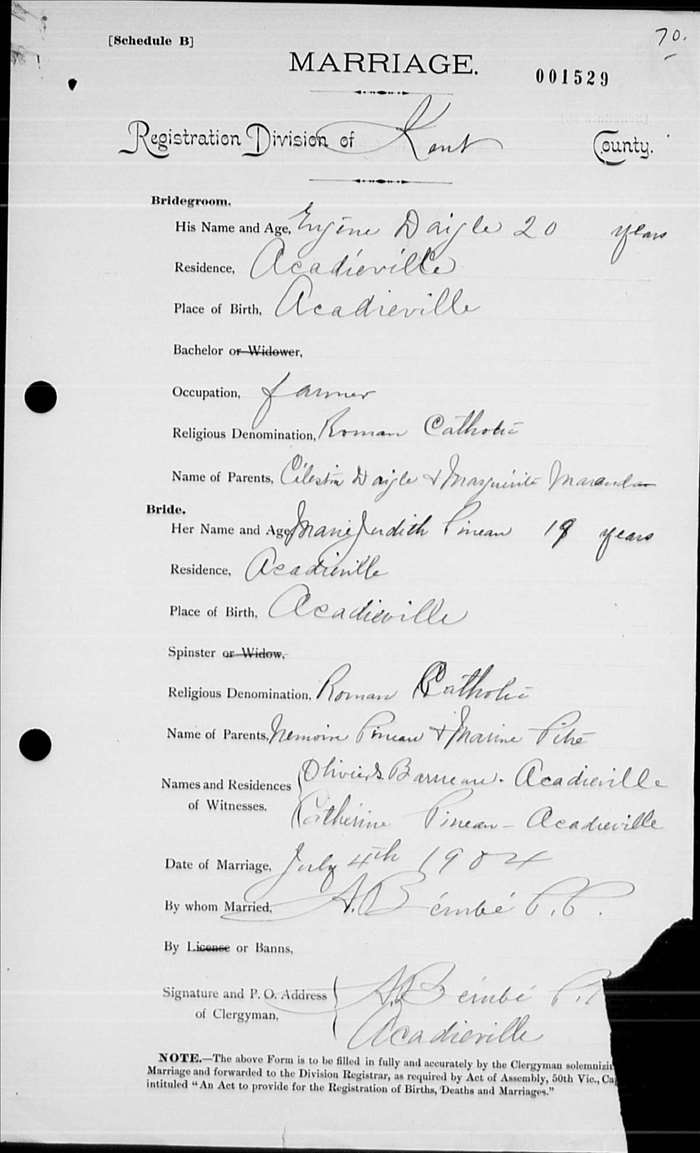 70.
[Schedule B]
MARRIAGE.
001529
Registration Division of Kent County.
Bridegroom.
His Name and Age, Eugène Daigle 20 years
Residence, Acadieville
Place of Birth, Acadieville
Bachelor or Widower,
Occupation, farmer
Religious Denomination, Roman Catholic
Name of Parents, Célestin Daigle & Marguerite
Bride.
Her Name and Age Marie Judith Pineau 19 years
Residence, Acadieville
Place of Birth, Acadieville
Spinster or Widow,
Religious Denomination, Roman Catholic
Name of Parents, Pineau & Marine
Names and Residences Barrieau. Acadieville
of Witnesses. Catherine Pineau - Acadieville
Date of Marriage, July 4th 1904
By whom Married, A. P.P.
By License or Banns,
Signature and P. O. Address A. P.
of Clergyman, Acadieville
NOTE.—The above Form is to be filled in fully and accurately by the Clergyman
Marriage and forwarded to the Division Registrar, as required by Act of Assembly, 50th Vic.,
intituled "An Act to provide for the Registration of Births, Deaths and Marriages."